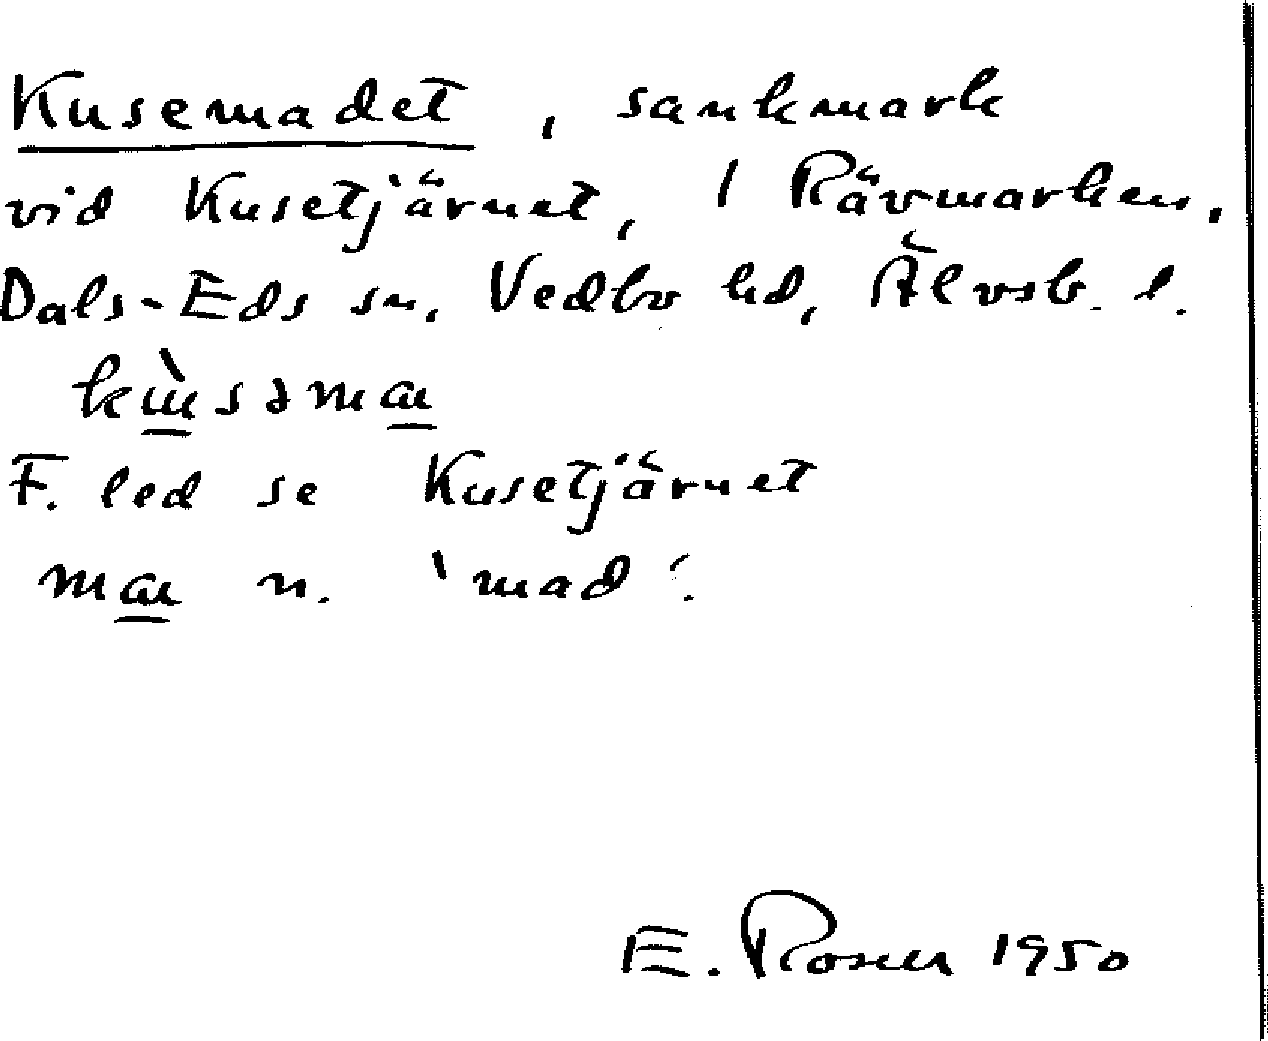 Kusemadet, sankmark
vid Kusetjärnet, 1 Rävmarken,
Dals-Eds sn, Vedbo hd, Älvsb. l.
kùsəmaı
F. led se Kusetjärnet
maı n. 'mad'.
E. Rosen 1950